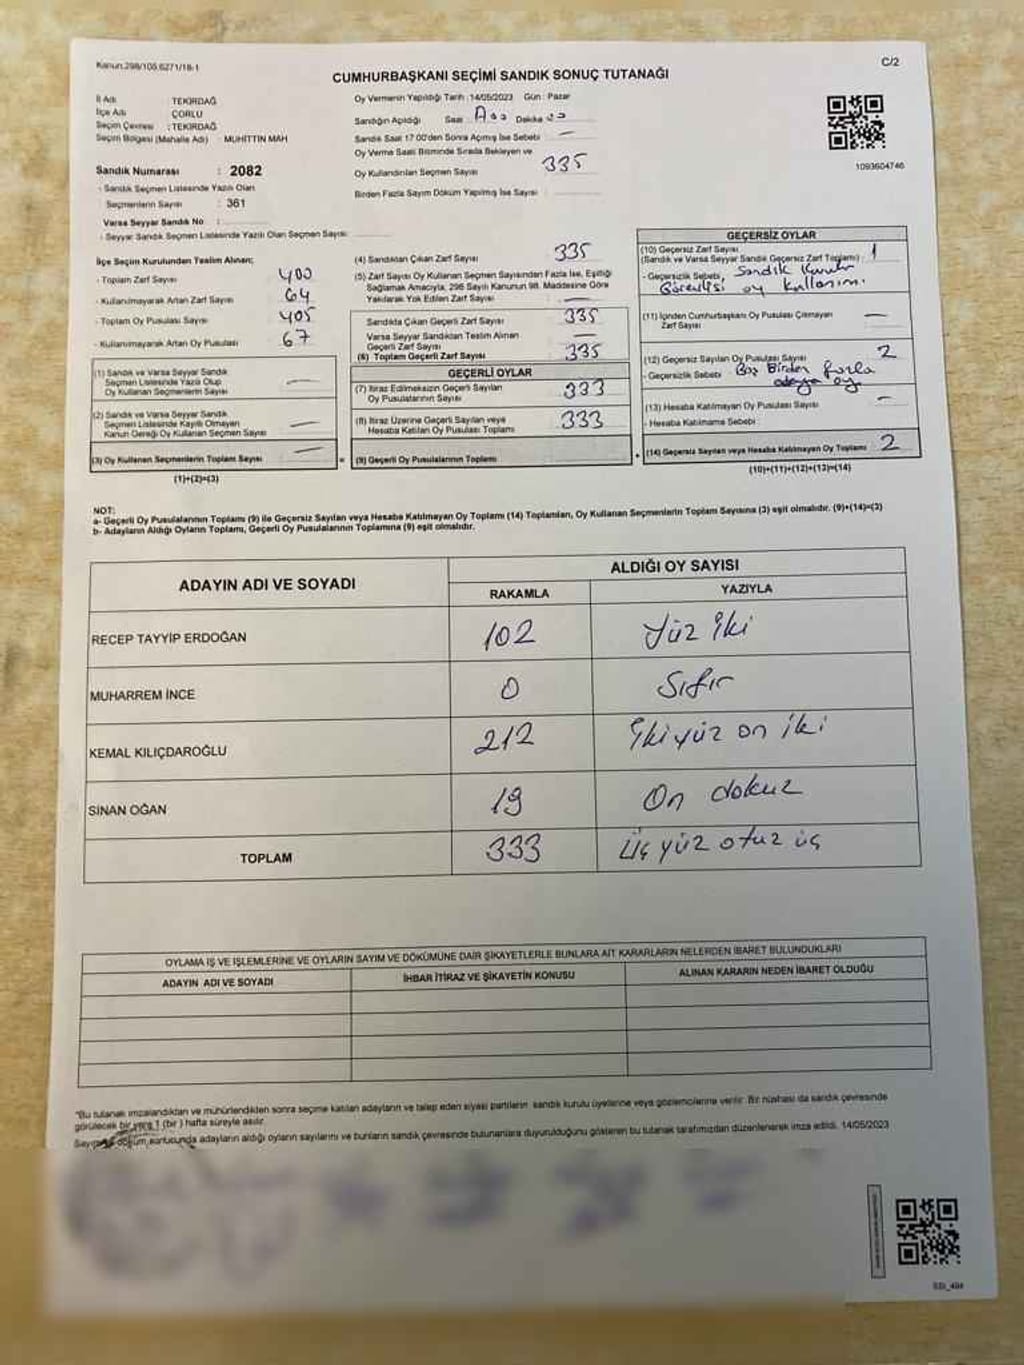 Kanun.298/105,6271/18-1
C/2
CUMHURBAŞKANI SEÇİMİ SANDIK SONUÇ TUTANAĞI
İl Adı TEKİRDAĞ
İlçe Adı ÇORLU
Seçim Çevresi : TEKİRDAĞ
Seçim Bölgesi (Mahalle Adı) : MUHİTTİN MAH
Sandık Numarası : 2082
- Sandık Seçmen Listesinde Yazılı Olan
Seçmenlerin Sayısı : 361
Varsa Seyyar Sandık No :
- Seyyar Sandık Seçmen Listesinde Yazılı Olan Seçmen Sayısı:
Oy Vermenin Yapıldığı Tarih : 14/05/2023 Gün : Pazar
Sandığın Açıldığı Saat Dakika
Sandık Saat 17:00'den Sonra Açılmış İse Sebebi : —
Oy Verme Saati Bitiminde Sırada Bekleyen ve
Oy Kullandırılan Seçmen Sayısı 335
Birden Fazla Sayım Döküm Yapılmış İse Sayısı :
1093604746
İlçe Seçim Kurulundan Teslim Alınan;
- Toplam Zarf Sayısı : 400
- Kullanılmayarak Artan Zarf Sayısı : 64
- Toplam Oy Pusulası Sayısı : 405
- Kullanılmayarak Artan Oy Pusulası : 67
(1) Sandık ve Varsa Seyyar Sandık
Seçmen Listesinde Yazılı Olup
Oy Kullanan Seçmenlerin Sayısı —
(2) Sandık ve Varsa Seyyar Sandık
Seçmen Listesinde Kayıtlı Olmayan
Kanun Gereği Oy Kullanan Seçmen Sayısı —
(3) Oy Kullanan Seçmenlerin Toplam Sayısı —
(1)+(2)=(3)
(4) Sandıktan Çıkan Zarf Sayısı : 335
(5) Zarf Sayısı Oy Kullanan Seçmen Sayısından Fazla İse, Eşitliği
Sağlamak Amacıyla, 298 Sayılı Kanunun 98. Maddesine Göre
Yakılarak Yok Edilen Zarf Sayısı : —
Sandıkta Çıkan Geçerli Zarf Sayısı : 335
Varsa Seyyar Sandıktan Teslim Alınan
Geçerli Zarf Sayısı —
(6) Toplam Geçerli Zarf Sayısı : 335
GEÇERLİ OYLAR
(7) İtiraz Edilmeksizin Geçerli Sayılan
Oy Pusulalarının Sayısı : 333
(8) İtiraz Üzerine Geçerli Sayılan veya
Hesaba Katılan Oy Pusulası Toplamı 333
= (9) Geçerli Oy Pusulalarının Toplamı
GEÇERSİZ OYLAR
(10) Geçersiz Zarf Sayısı
(Sandık ve Varsa Seyyar Sandık Geçersiz Zarf Toplamı) : 1
- Geçersizlik Sebebi, Sandık Kurulu
Görevlisi oy kullanımı.
(11) İçinden Cumhurbaşkanı Oy Pusulası Çıkmayan
Zarf Sayısı —
(12) Geçersiz Sayılan Oy Pusulası Sayısı 2
- Geçersizlik Sebebi Birden fazla
adaya oy
(13) Hesaba Katılmayan Oy Pusulası Sayısı —
- Hesaba Katılmama Sebebi
+ (14) Geçersiz Sayılan veya Hesaba Katılmayan Oy Toplamı 2
(10)+(11)+(12)+(13)=(14)
NOT:
a- Geçerli Oy Pusulalarının Toplamı (9) ile Geçersiz Sayılan veya Hesaba Katılmayan Oy Toplamı (14) Toplamları, Oy Kullanan Seçmenlerin Toplam Sayısına (3) eşit olmalıdır. (9)+(14)=(3)
b- Adayların Aldığı Oyların Toplamı, Geçerli Oy Pusulalarının Toplamına (9) eşit olmalıdır.
ADAYIN ADI VE SOYADI
ALDIĞI OY SAYISI
RAKAMLA YAZIYLA
RECEP TAYYİP ERDOĞAN 102 Yüz iki
MUHARREM İNCE 0 Sıfır
KEMAL KILIÇDAROĞLU 212 İkiyüz on iki
SİNAN OĞAN 19 On dokuz
TOPLAM 333 Üç yüz otuz üç
OYLAMA İŞ VE İŞLEMLERİNE VE OYLARIN SAYIM VE DÖKÜMÜNE DAİR ŞİKAYETLERLE BUNLARA AİT KARARLARIN NELERDEN İBARET BULUNDUKLARI
ADAYIN ADI VE SOYADI İHBAR İTİRAZ VE ŞİKAYETİN KONUSU ALINAN KARARIN NEDEN İBARET OLDUĞU
*Bu tutanak imzalandıktan ve mühürlendikten sonra seçime katılan adayların ve talep eden siyasi partilerin sandık kurulu üyelerine veya gözlemcilerine verilir. Bir nüshası da sandık çevresinde
görülecek bir yere 1 (bir) hafta süreyle asılır.
döküm sonucunda adayların aldığı oyların sayılarını ve bunların sandık çevresinde bulunanlara duyurulduğunu gösteren bu tutanak tarafımızdan düzenlenerek imza edildi. 14/05/2023